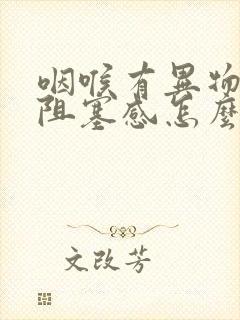 咽喉有异物
阻塞感怎麽
文改芳